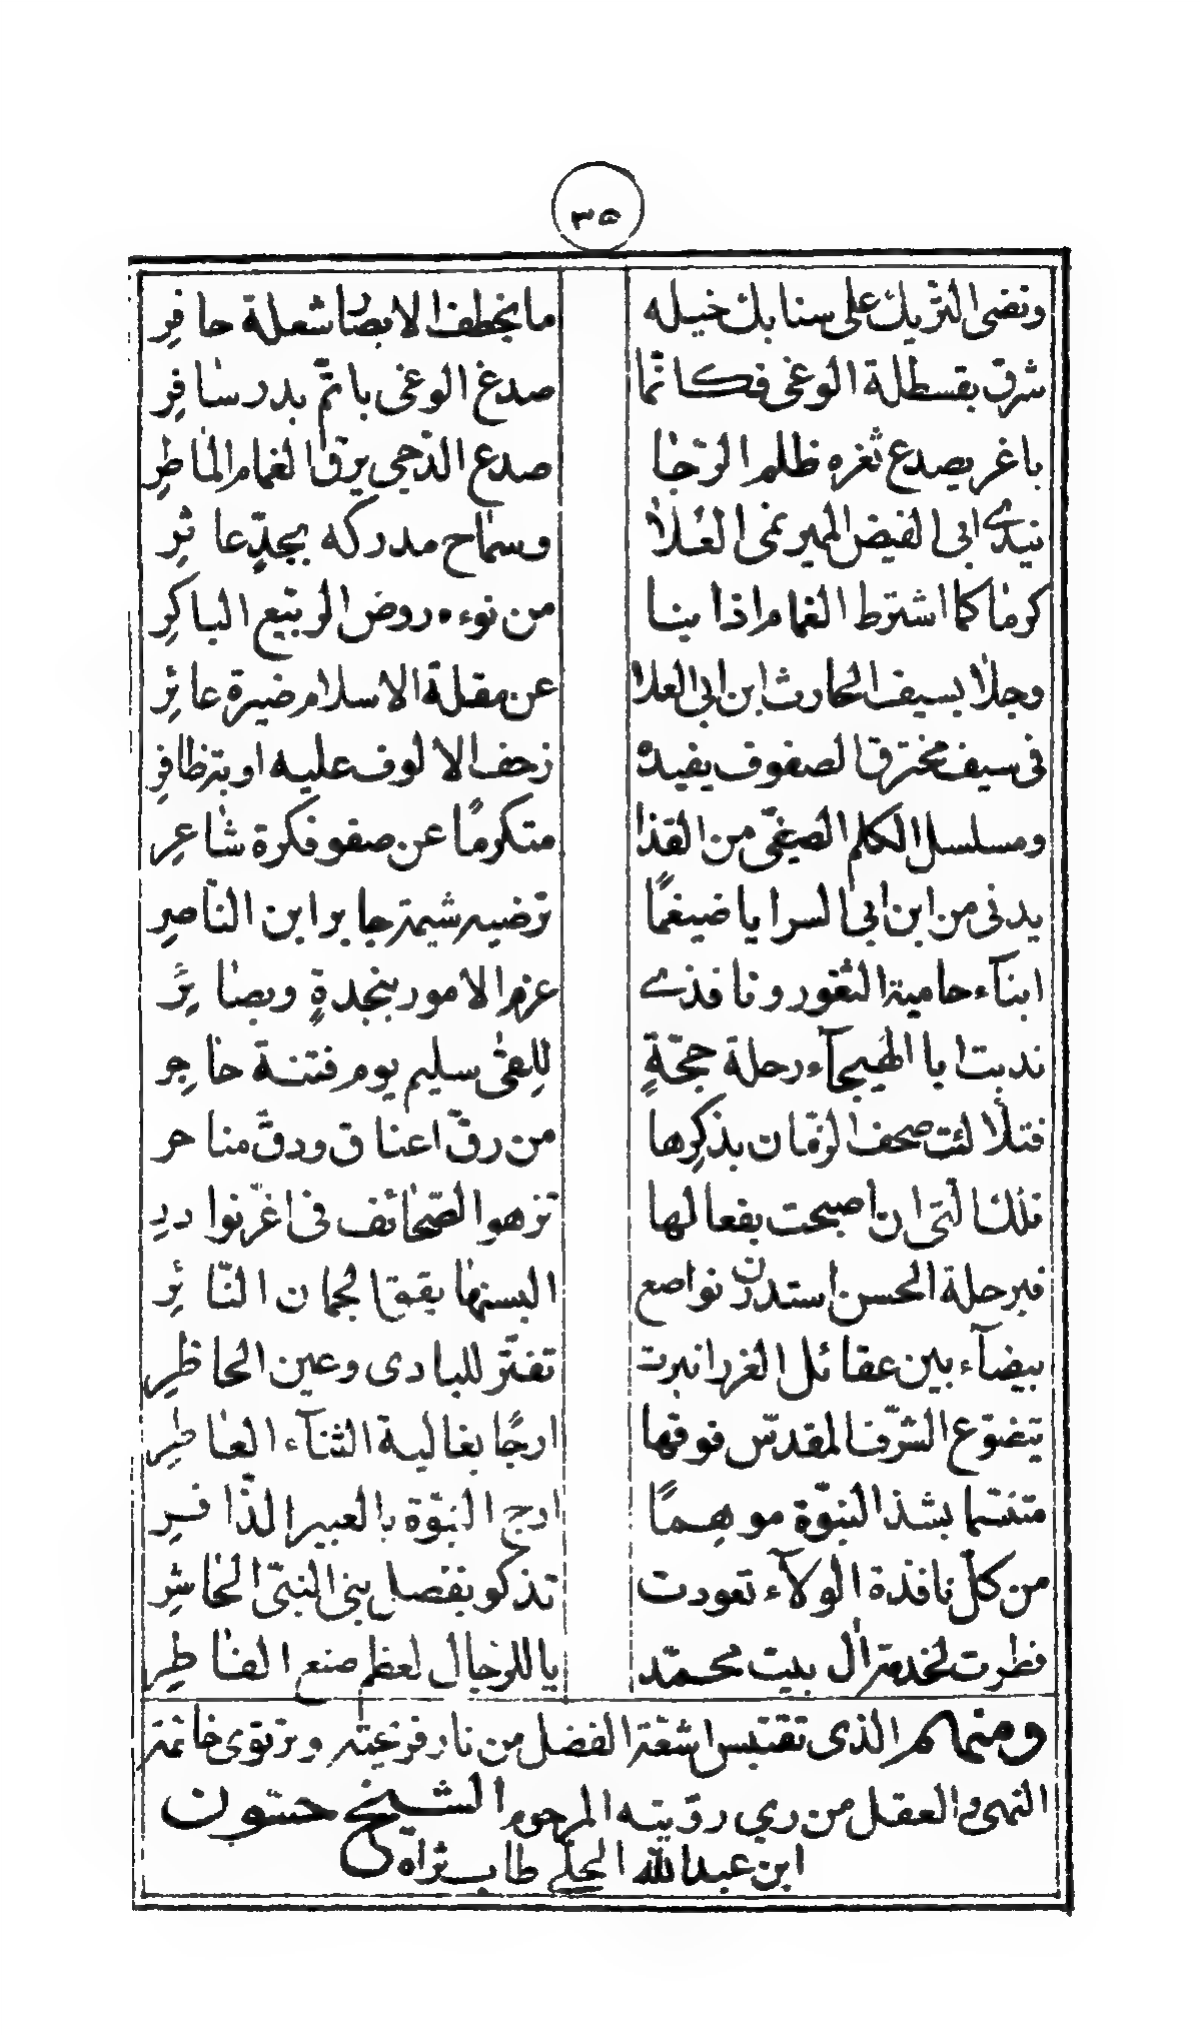 ٣٥
ونضى التريك على سنابك خيله ما يخطف الابصا شعلة حافر
شرق بقسطلة الوغى فكانّما صدغ الوغى باتمّ بدر سافر
باغر يصدع ثغره ظلم الرجا صدع الدّجى برق الغمام الماطر
ندى ابى الفيض المير نمى العلا وسماح مدركه بجدّ عاثر
كرما كما اشترط الغمام اذا من نوءه روض الربيع الباكر
وجلا بسيف الحارث ابن ابى العلا عن مقلة الاسلام ضيرة عائر
فى سيف مخترق الصفوف يفيده زحف الالوف عليه اوبة ظافر
ومسلسل الكلم الصفىّ من القذا متكرمًا عن صفو فكرة شاعر
يدنى من ابن ابى السرايا ضيغمًا ترضيه شيمة جابر ابن الناصر
ابنآء حامية الثغور ونافذى عزم الامور بنجدةٍ وبصائر
ندبت ابا الهيجآء رحلة حجّةٍ للعقى سليم يوم فتنة حاجر
فتلألئت صحف الزمان بذكرها من رقّ اعناق ودقّ مناحر
فلك التى ان اصبحت بفعالها تزهو الصّحائف فى اغرّ نوادر
فبرحلة الحسن استدرن نواصع البستها بقق الجمان النّاثر
بيضآء بين عقائل الغر انبرت تفترّ للبادى وعين الحاظر
يتضوّع الشرف المقدّس فوقها ارجًا بغالية الثنآء العاطر
متنسّما بشذ النبوّة موهمًا ارج النبوّة بالعبير الذّافر
من كلّ نافذة الولآء تعودت تذكو بفضل بنى النبىّ الحاشر
فطرت لخدمة آل بيت محمّد يا للرجال لعظم صنع الفاطر
ومنهم الذى تقتبس اشعّة الفضل من نار قريحته وترتوى خاتمة
النهى والعقل من ري رويته المرحوم الشيخ حسّون
ابن عبد الله الحلّي طاب ثراه